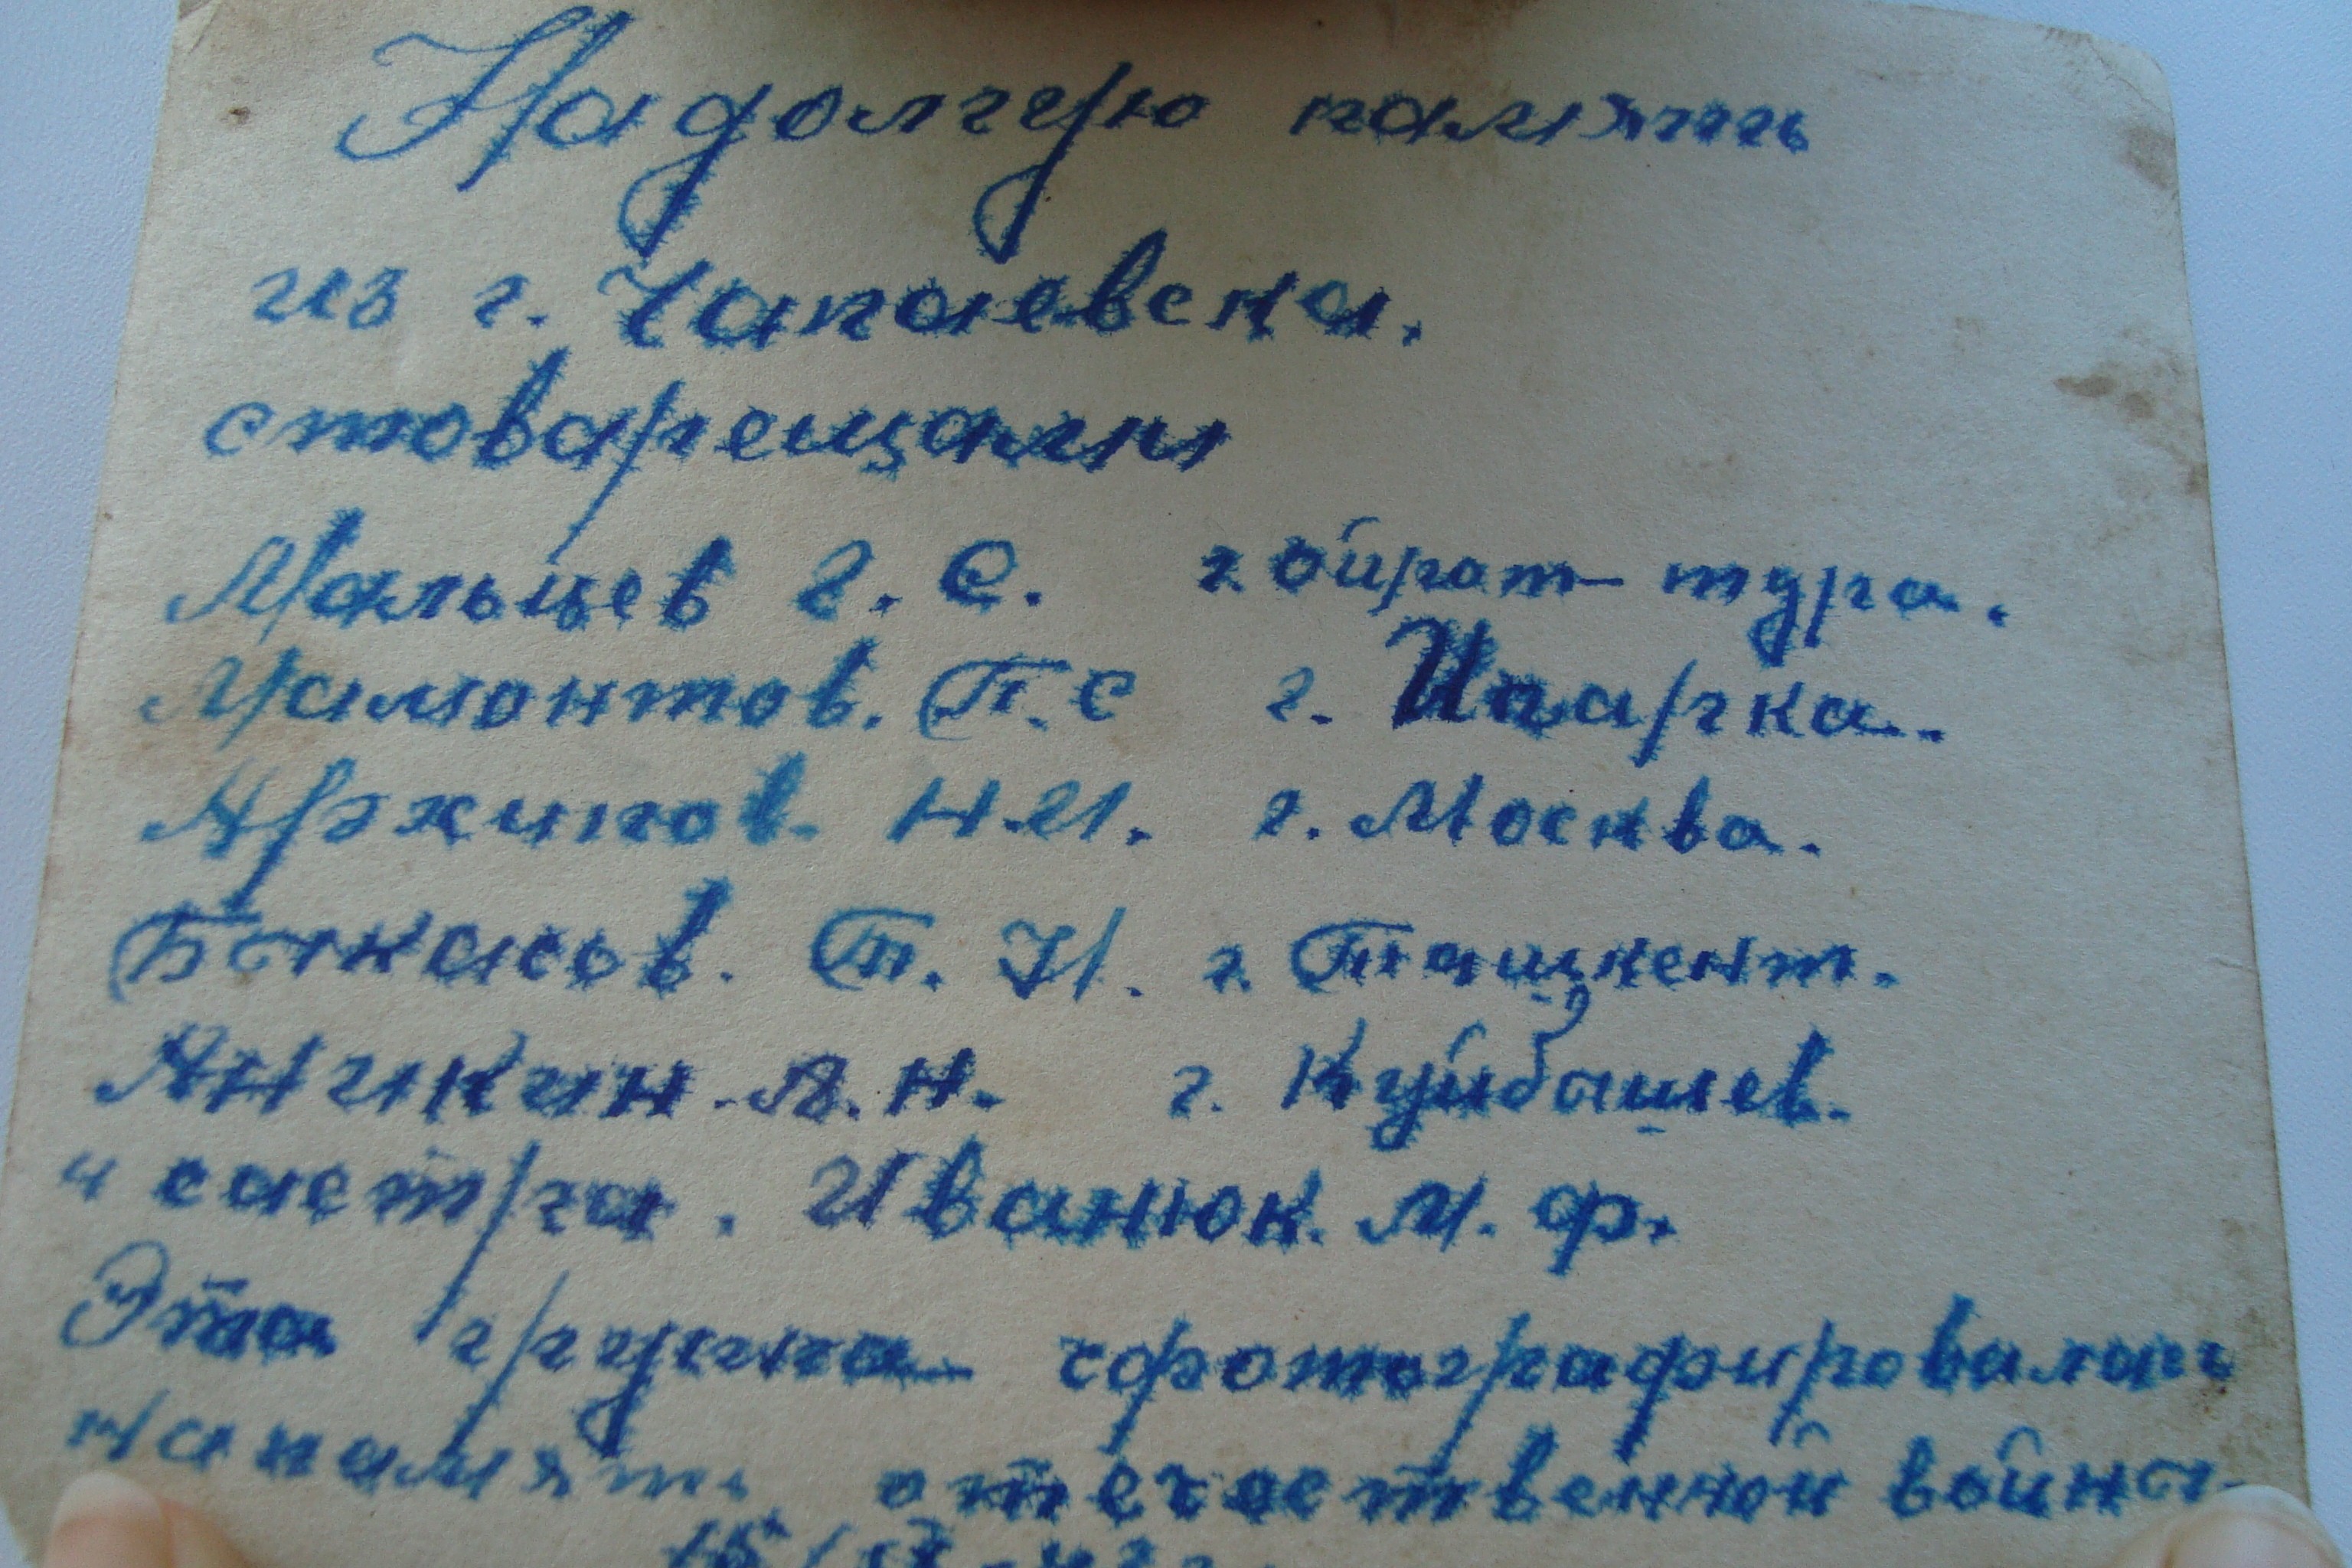 Надолгую память
из г. Чапаевска.
стоварещами
Мальцев Г. С. г. Ойрот-тура.
Мамонтов. П. С г. Игарка.
Архипов. Н. И. г. Москва.
П. И. г. Ташкент.
Аникин. А. Н. г. Куйбышев.
и састра. Иванюк. М. Ф.
Эта группа сфотографировалась
напамять отечественной войны.